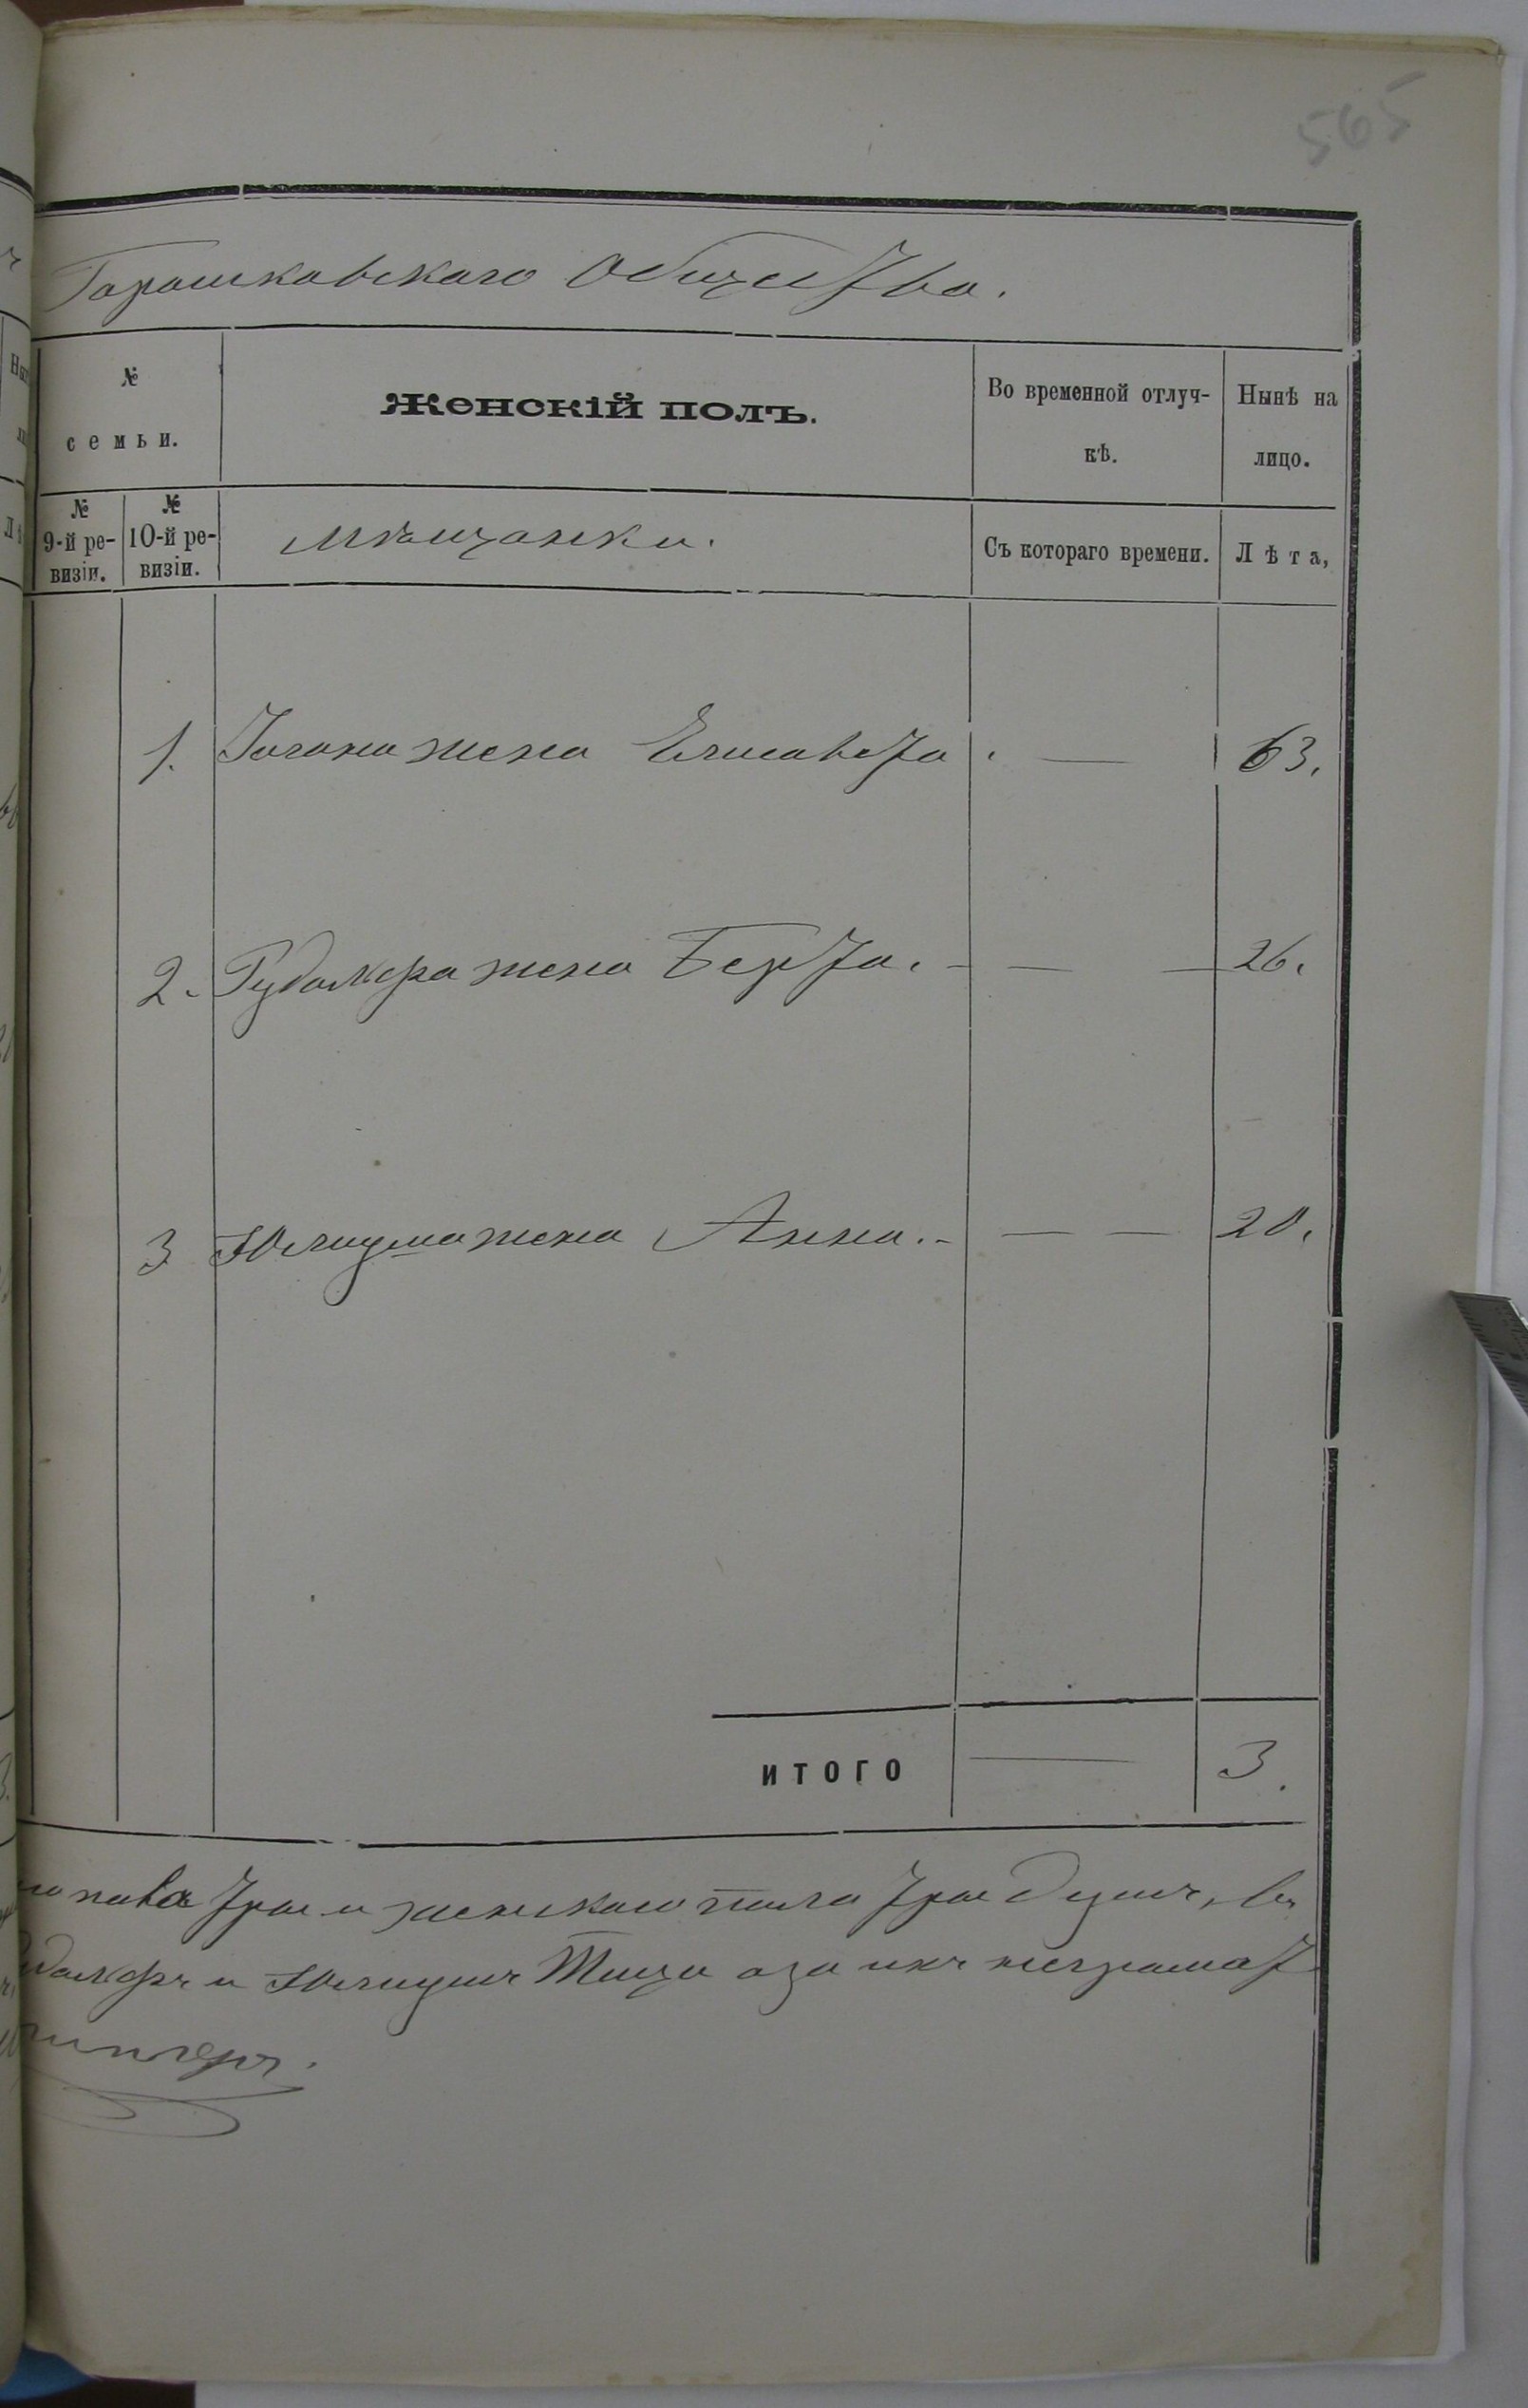 565
Горошковскаго Общества.
№ семьи.
Женскій полъ.
Во временной отлуч-
кѣ.
Нынѣ на
лицо.
№ 9-й ре-
визіи.
№ 10-й ре-
визіи.
Мѣщанки.
Съ котораго времени.
Лѣта,
1. Іогана жена Елисавета — 63.
2. Рудольфа жена Берта. — — 26.
3 Юлиуша жена Анна. — — 20.
ИТОГО — 3.
пола три и женскаго пола три душъ, въ
дольфъ и Юлиушъ а за ихъ неграмот